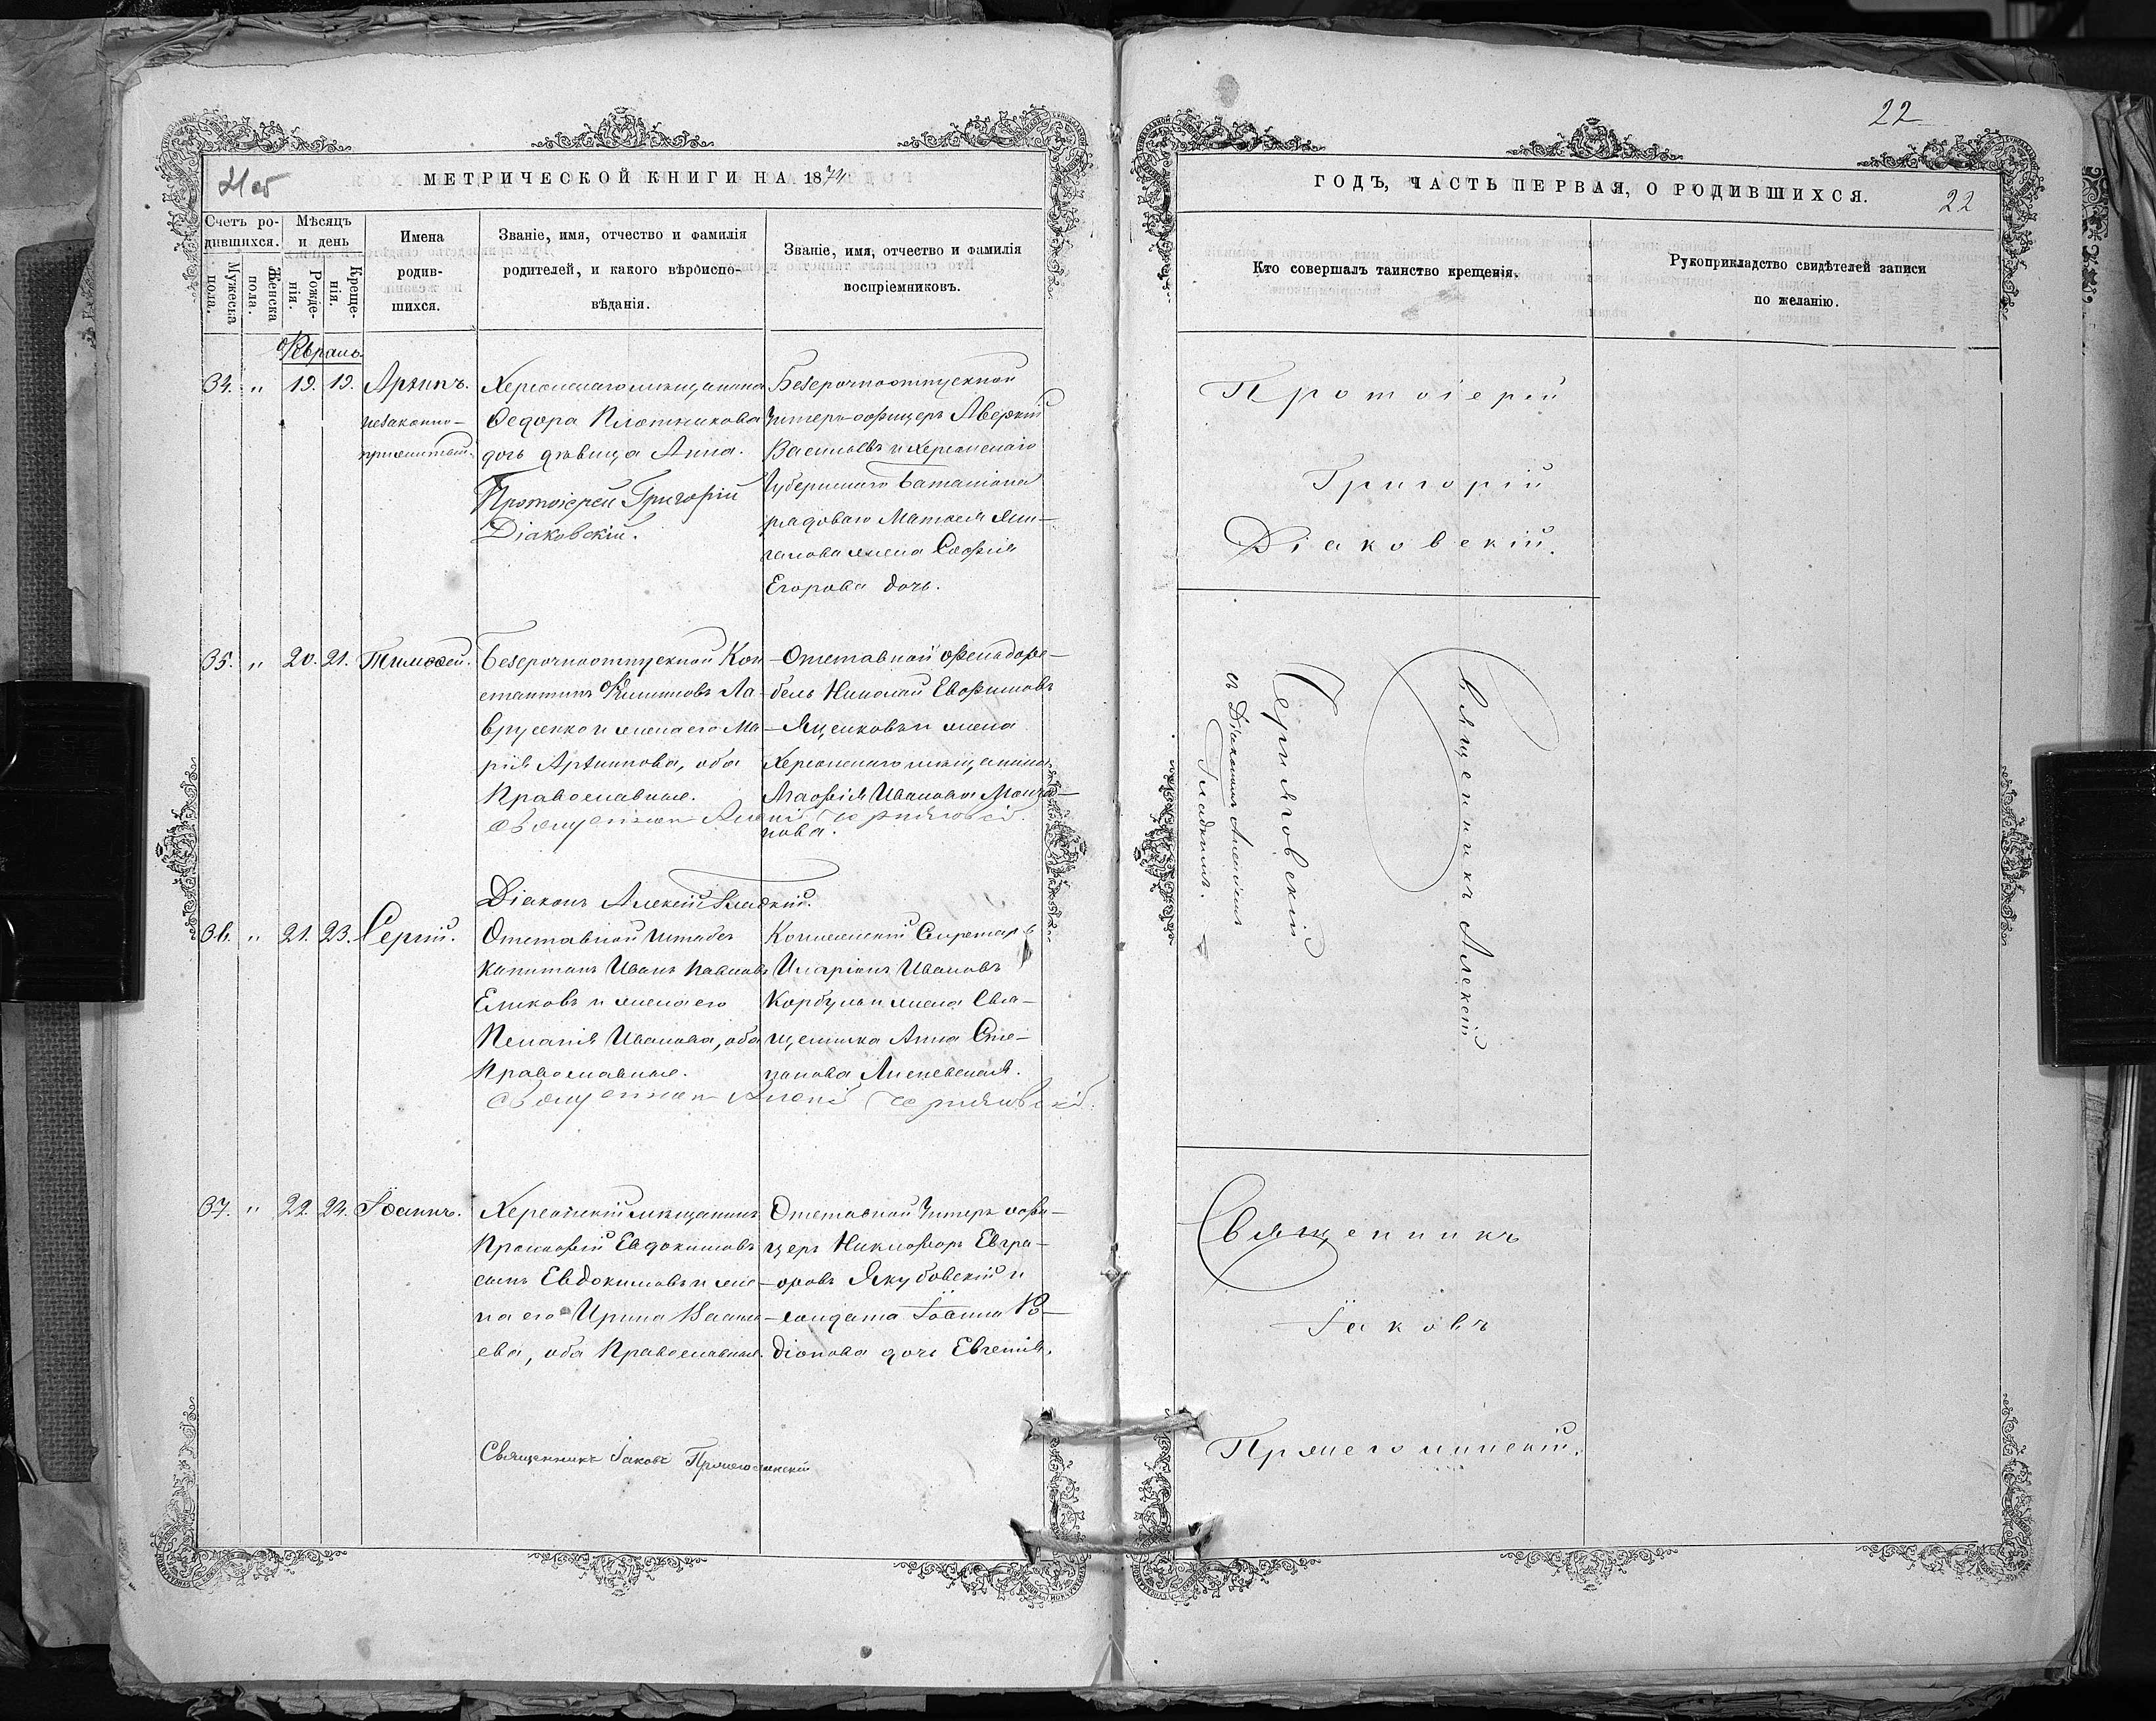 МЕТРИЧЕСКОЙ КНИГИ НА 1874
Счетъ родившихся.
Мужеска пола.
Женска пола.
Мѣсяцъ и день
Рожденія.
Крещенія.
Имена родившихся.
Званіе, имя, отчество и фамилія
родителей, и какого вѣроиспо-
вѣданія.
Званіе, имя, отчество и фамилія
воспріемниковъ.
Февраль
34. " 19. 19. Архипъ.
незаконно-
прижитый.
Херсонскаго мѣщанина
Ѳедора Плотникова
дочь дѣвица Анна.
Протоіерей Григорій
Діаковскій.
Безсрочноотпускной
Унтеръ-офицеръ Аверкій
Васильевъ и Херсонскаго
Губернскаго баталіона
рядоваго Матвея
жена Софія
Егорова дочь.
35. " 20. 21. Тимоѳей.
Безсрочноотпускной Кон-
стантинъ Филиповъ Ла-
врусенко и жена его Ма-
рія Архипова, оба
Православные.
Священникъ Алексій Чернявскій.
Діаконъ Алексій Гладкій.
Отставной фельдфе-
бель Николай Евфимовъ
Яценковъ и жена
Херсонскаго мѣщанина
Марфія Иванова
нова.
36. " 21. 23. Сергій.
Отставной Штабсъ
Капитанъ Иванъ Павловъ
Елковъ и жена его
Пелагія Иванова, оба
Православные.
Священникъ Алексій Чернявскій.
Коллежскій Секретарь
Иларіонъ Ивановъ
Корбулъ и жена Свя-
щенника Анна Сте-
панова
37. " 22. 24. Іоаннъ.
Херсонскій мѣщанинъ
Прокофій Евдокимовъ
сынъ Евдокимовъ и же-
на его Ирина Василь-
ева, оба Православные.
Священникъ Іаковъ
Отставной Унтеръ офи-
церъ Никифоръ Евгра-
фовъ Якубовскій и
солдата Іоанна Ро-
діонова дочь Евгенія.
22
ГОДЪ, ЧАСТЬ ПЕРВАЯ, О РОДИВШИХСЯ.
22
Кто совершалъ таинство крещенія.
Рукоприкладство свидѣтелей записи
по желанію.
Протоіерей
Григорій
Діаковскій.
Священникъ Алексій
Чернявскій
съ Діакономъ Алексіемъ
Гладкимъ.
Священникъ
Іаковъ